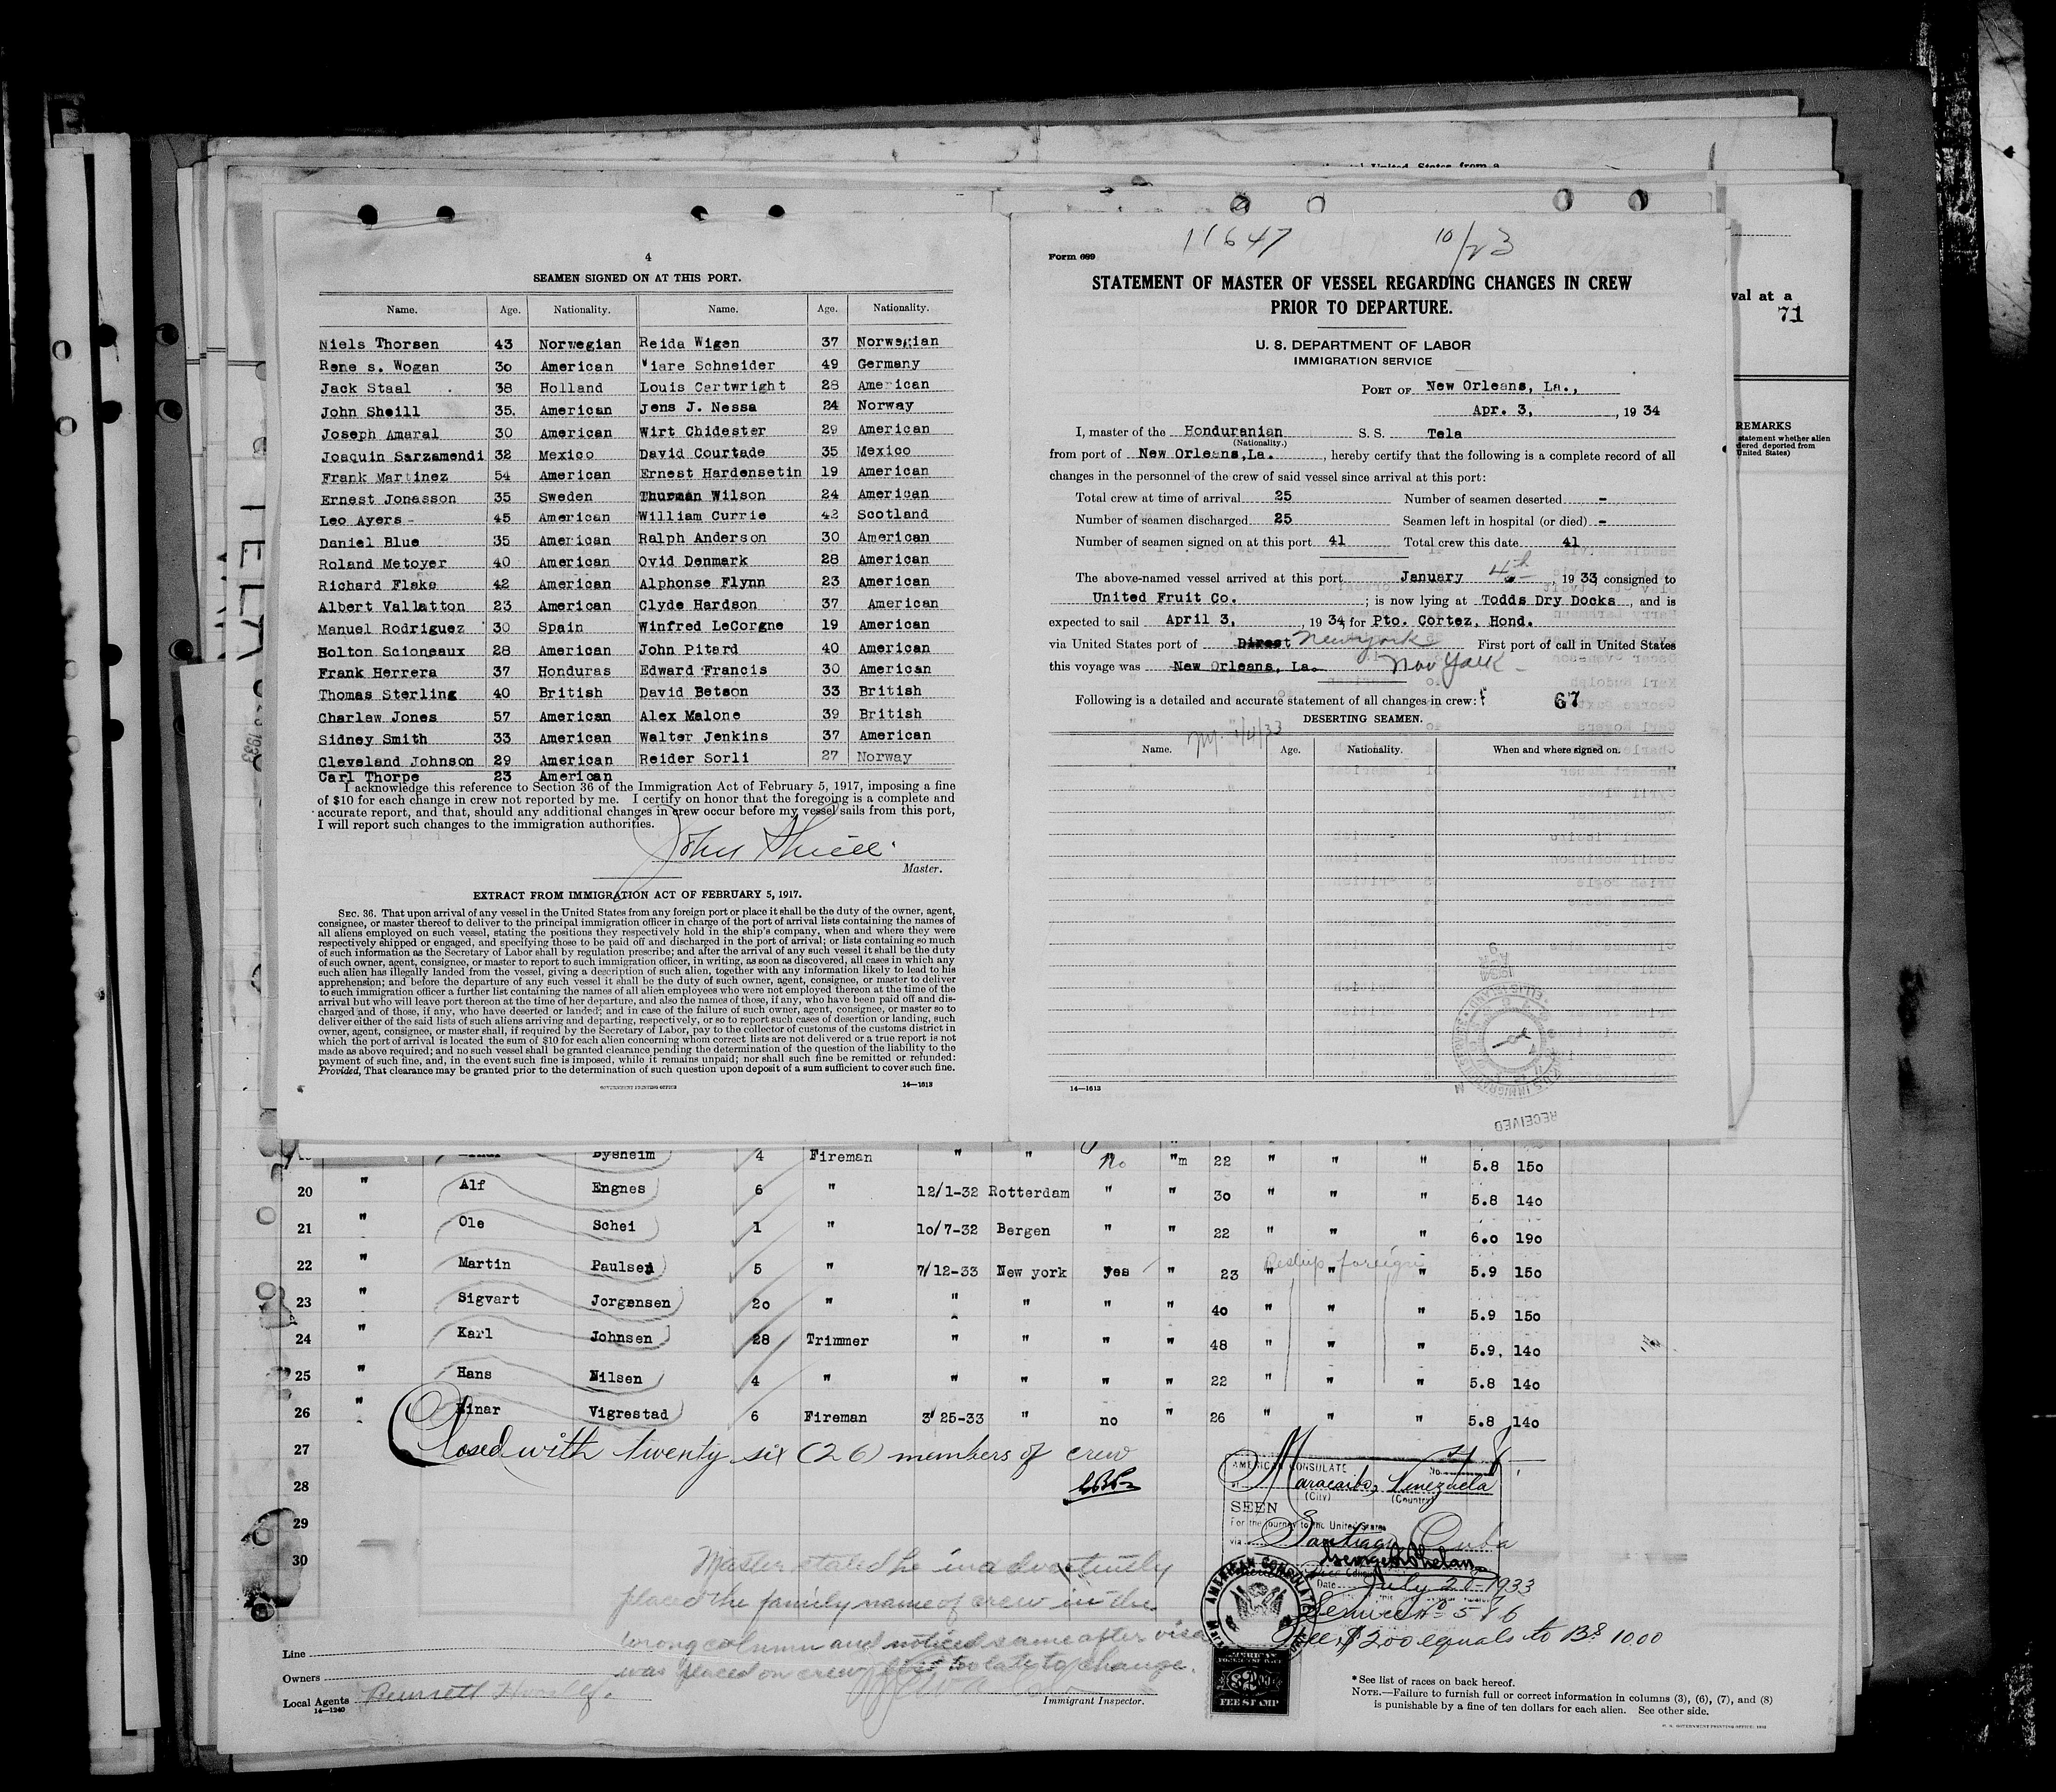 4
SEAMEN SIGNED ON AT THIS PORT.
Name. Age. Nationality. Name. Age. Nationality.
Niels Thorsen 43 Norwegian Reida Wigen 37 Norwegian
Rene s. Wogan 30 American Wiare Schneider 49 Germany
Jack Staal 38 Holland Louis Cartwright 28 American
John Sheill 35. American Jens J. Nessa 24 Norway
Joseph Amaral 30 American Wirt Chidester 29 American
Joaquin Sarzamendi 32 Mexico David Courtade 35 Mexico
Frank Martinez 54 American Ernest Hardensetin 19 American
Ernest Jonasson 35 Sweden Thurman Wilson 24 American
Leo Ayers 45 American William Currie 42 Scotland
Daniel Blue 35 American Ralph Anderson 30 American
Roland Metoyer 40 American Ovid Denmark 28 American
Richard Flake 42 American Alphonse Flynn 23 American
Albert Vallatton 23 American Clyde Hardson 37 American
Manuel Rodriguez 30 Spain Winfred LeCorgne 19 American
Holton Scioneaux 28 American John Pitard 40 American
Frank Herrera 37 Honduras Edward Francis 30 American
Thomas Sterling 40 British David Betson 33 British
Charlew Jones 57 American Alex Malone 39 British
Sidney Smith 33 American Walter Jenkins 37 American
Cleveland Johnson 29 American Reider Sorli 27 Norway
Carl Thorpe 23 American
I acknowledge this reference to Section 36 of the Immigration Act of February 5, 1917, imposing a fine
of $10 for each change in crew not reported by me. I certify on honor that the foregoing is a complete and
accurate report, and that, should any additional changes in crew occur before my vessel sails from this port,
I will report such changes to the immigration authorities.
John Sheill
Master.
EXTRACT FROM IMMIGRATION ACT OF FEBRUARY 5, 1917.
SEC. 36. That upon arrival of any vessel in the United States from any foreign port or place it shall be the duty of the owner, agent,
consignee, or master thereof to deliver to the principal immigration officer in charge of the port of arrival lists containing the names of
all aliens employed on such vessel, stating the positions they respectively hold in the ship's company, when and where they were
respectively shipped or engaged, and specifying those to be paid off and discharged in the port of arrival; or lists containing so much
of such information as the Secretary of Labor shall by regulation prescribe; and after the arrival of any such vessel it shall be the duty
of such owner, agent, consignee, or master to report to such immigration officer, in writing, as soon as discovered, all cases in which any
such alien has illegally landed from the vessel, giving a description of such alien, together with any information likely to lead to his
apprehension; and before the departure of any such vessel it shall be the duty of such owner, agent, consignee, or master to deliver
to such immigration officer a further list containing the names of all alien employees who were not employed thereon at the time of the
arrival but who will leave port thereon at the time of her departure, and also the names of those, if any, who have been paid off and dis-
charged and of those, if any, who have deserted or landed; and in case of the failure of such owner, agent, consignee, or master so to
deliver either of the said lists of such aliens arriving and departing, respectively, or so to report such cases of desertion or landing, such
owner, agent, consignee, or master shall, if required by the Secretary of Labor, pay to the collector of customs of the customs district in
which the port of arrival is located the sum of $10 for each alien concerning whom correct lists are not delivered or a true report is not
made as above required; and no such vessel shall be granted clearance pending the determination of the question of the liability to the
payment of such fine, and, in the event such fine is imposed, while it remains unpaid; nor shall such fine be remitted or refunded:
Provided, That clearance may be granted prior to the determination of such question upon deposit of a sum sufficient to cover such fine.
GOVERNMENT PRINTING OFFICE 14—1613
11647 10/23
Form 689
STATEMENT OF MASTER OF VESSEL REGARDING CHANGES IN CREW
PRIOR TO DEPARTURE.
U. S. DEPARTMENT OF LABOR
IMMIGRATION SERVICE
PORT OF New Orleans, La.,
Apr. 3, , 19 34
I, master of the Honduranian S. S. Tela
(Nationality.)
from port of New Orleans, La. , hereby certify that the following is a complete record of all
changes in the personnel of the crew of said vessel since arrival at this port:
Total crew at time of arrival 25 Number of seamen deserted -
Number of seamen discharged 25 Seamen left in hospital (or died) -
Number of seamen signed on at this port 41 Total crew this date 41
The above-named vessel arrived at this port January 4th , 19 33, consigned to
United Fruit Co. ; is now lying at Todds Dry Docks , and is
expected to sail April 3, , 19 34, for Pto. Cortez, Hond.
via United States port of Direct New York First port of call in United States
this voyage was New Orleans, La. New York
Following is a detailed and accurate statement of all changes in crew: 67
DESERTING SEAMEN.
NY 1/4/33
Name. Age. Nationality. When and where signed on.
14—1613
RECEIVED
val at a
71
REMARKS
statement whether alien
dered deported from
United States)
TELA
Dysheim 4 Fireman " " No "m 22 " " " 5.8 150
20 " Alf Engnes 6 " 12/1-32 Rotterdam " " 30 " " " 5.8 140
21 " Ole Schei 1 " 10/7-32 Bergen " " 22 " " " 6.0 190
22 " Martin Paulsen 5 " 7/12-33 New york yes " 23 " " " 5.9 150
Reship foreign
23 " Sigvart Jorgensen 20 " " " " " 40 " " " 5.9 150
24 " Karl Johnsen 28 Trimmer " " " " 48 " " " 5.9. 140
25 " Hans Nilsen 4 " " " " " 22 " " " 5.8 140
26 " Einar Vigrestad 6 Fireman 3/25-33 " no " 26 " " " 5.8 140
27 Closed with twenty six (26) members of crew
28
29
30
AMERICAN CONSULATE No.
Maracaibo, Venezuela
(City) (Country)
SEEN
For the journey to the United States
via Santiago Cuba
Date July 20-1933
Service No 586
Fee $2.00 equals to Bs 10.00
AMERICAN CONSULATE
FEE STAMP
Master stated he inadvertently
placed the family name of crew in the
wrong column and noticed same after visa
was placed on crew list too late to change.
Line
Owners
Local Agents
14—1240
Immigrant Inspector.
* See list of races on back hereof.
NOTE.—Failure to furnish full or correct information in columns (3), (6), (7), and (8)
is punishable by a fine of ten dollars for each alien. See other side.
U. S. GOVERNMENT PRINTING OFFICE: 1932